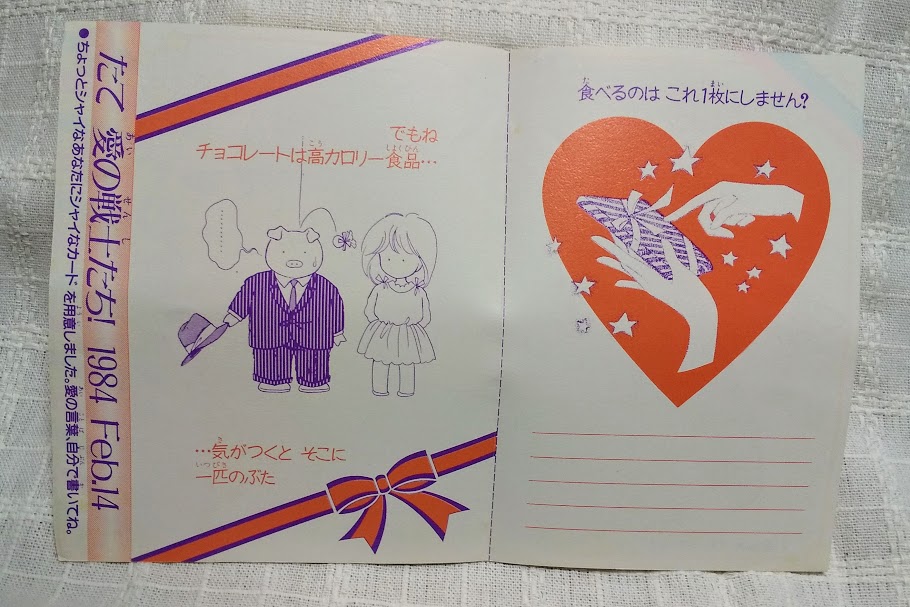 たて 愛の戦士たち! 1984 Feb.14
●ちょっとシャイなあなたにシャイなカードを用意しました。愛の言葉、自分で書いてね。
でもね
チョコレートは高カロリー食品…
…………
…気がつくと そこに
一匹のぶた
食べるのは これ1枚にしません?